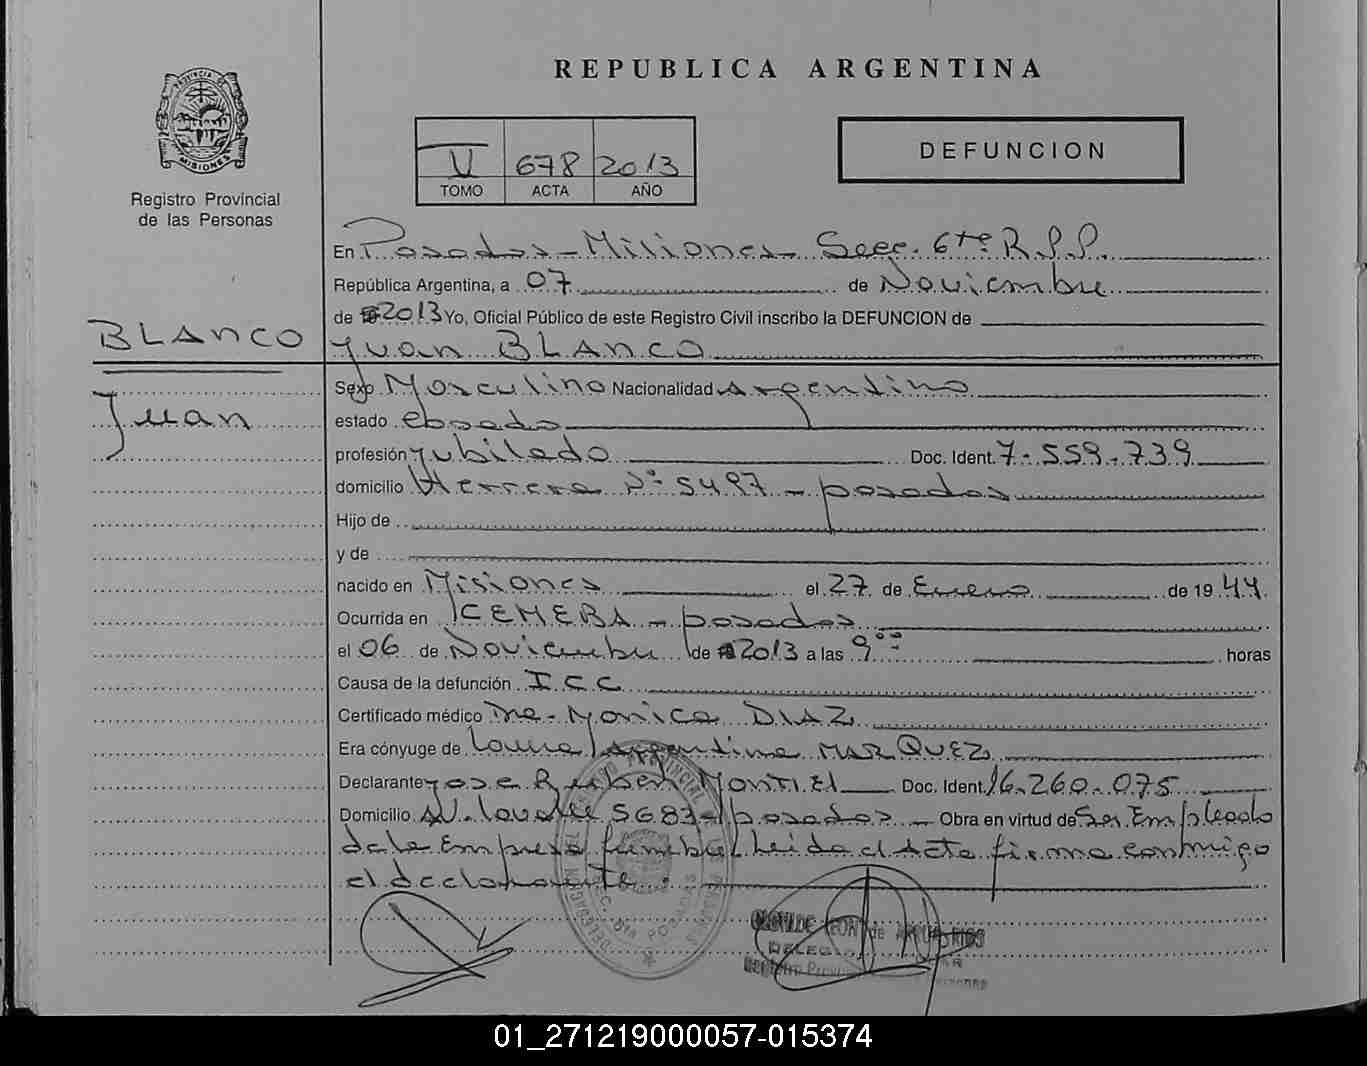 REPUBLICA ARGENTINA
PROVINCIA DE
MISIONES
Registro Provincial
de las Personas
V 678 2013
TOMO ACTA AÑO
DEFUNCION
En Posadas - Misiones - Secc. 6ta R.P.P.
República Argentina, a 07 de Noviembre
de 2013 Yo, Oficial Público de este Registro Civil inscribo la DEFUNCION de
BLANCO
Juan BLANCO
Juan
Sexo Masculino Nacionalidad Argentino
estado Casado
profesión Jubilado Doc. Ident. 7.559.739
domicilio Herrera Nº 5497 - posadas
Hijo de
y de
nacido en Misiones el 27 de Enero de 1944
Ocurrida en CEMEBA - posadas
el 06 de Noviembre de 2013 a las 9ºº horas
Causa de la defunción I C C
Certificado médico Dra. Monica DIAZ
Era cónyuge de Laura Argentina MARQUEZ
Declarante Jose Ruben MONTIEL Doc. Ident. 16.260.075
Domicilio AV. Lavalle 5683 - posadas - Obra en virtud de Ser Empleado
de la Empresa funebre Leida el Acta firma conmigo
el declarante.
Registro Provin
01_271219000057-015374